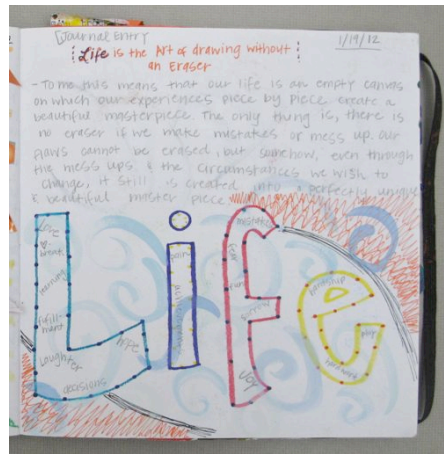 Journal Entry
1/19/12
Life is the Art of drawing without
an Eraser
- To me this means that our life is an empty canvas
on which our experiences piece by piece create a
beautiful masterpiece. The only thing is, there is
no eraser if we make mistakes or mess up. Our
flaws cannot be erased, but somehow, even through
the mess ups & the circumstances we wish to
change, it still is created into a perfectly unique
& beautiful master piece
Life
love
heart
learning
fulfill-
ment
laughter
decisions
hope
pain
mistakes
fear
fun
joy
hardship
play